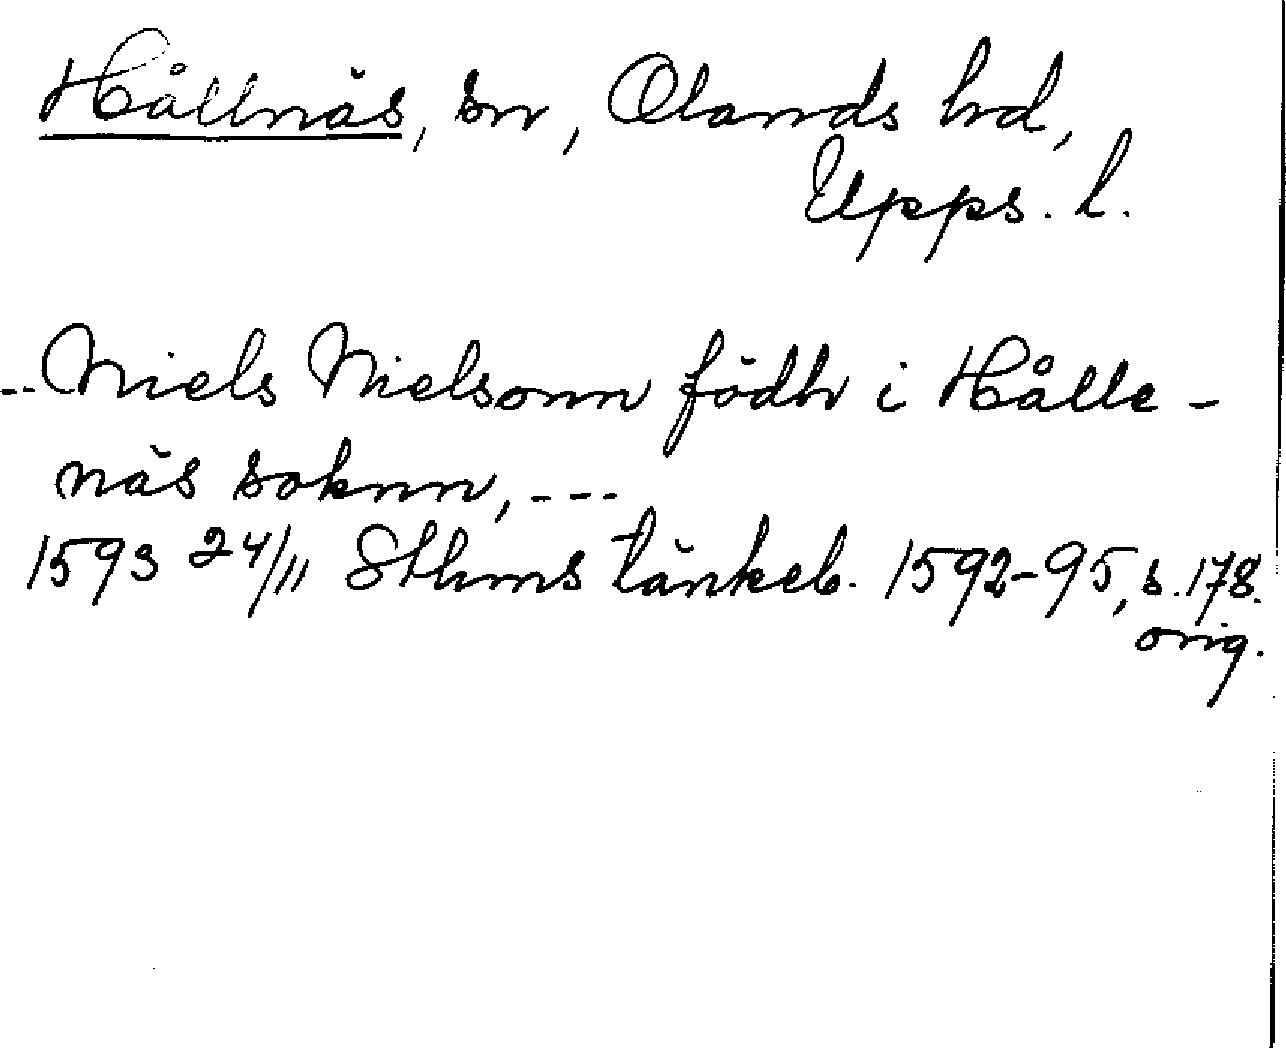 Hållnäs, sn, Olands hd,
Upps. l.
-- Niels Nielsonn födhr i Hålle-
näs soknn, ---
1593 24/11 Sthms tänkeb. 1592-95, s. 178.
orig.